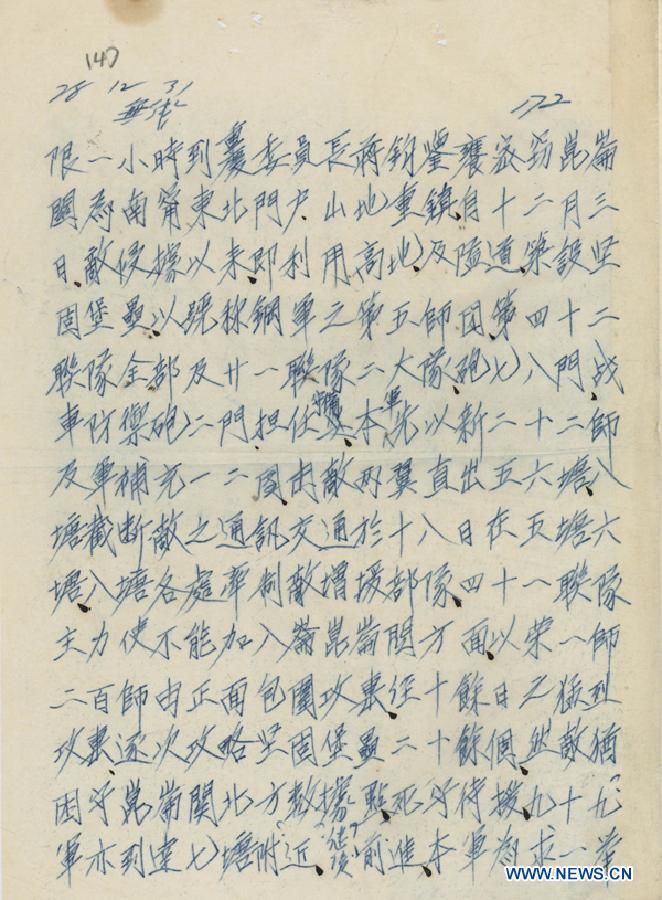 140
28 12 31
122
限一小時到重慶委員長蔣鈞鑒襄密竊崑崙
關為南甯東北門户山地重鎮自十二月三
日敵侵據以来即利用高地及隘道築設坚
固堡壘以號称鋼軍之第五師团第四十二
聯隊全部及廿一聯隊二大隊砲七八門战
車防禦砲二門担任守備本軍先以新二十二師
及軍補充一二团由敵两翼直出五六塘八
塘截断敵之通訊交通於十八日在五塘六
塘八塘各處牽制敵增援部隊四十一聯隊
主力使不能加入崙崑崙関方面以荣一師
二百師由正面包圍攻击经十餘日之猛烈
攻击逐次攻略坚固堡壘二十餘個然敵猶
困守崑崙関北方数據點死守待援九十九
軍亦到達七塘附近继续前進本軍為求一举
WWW.NEWS.CN